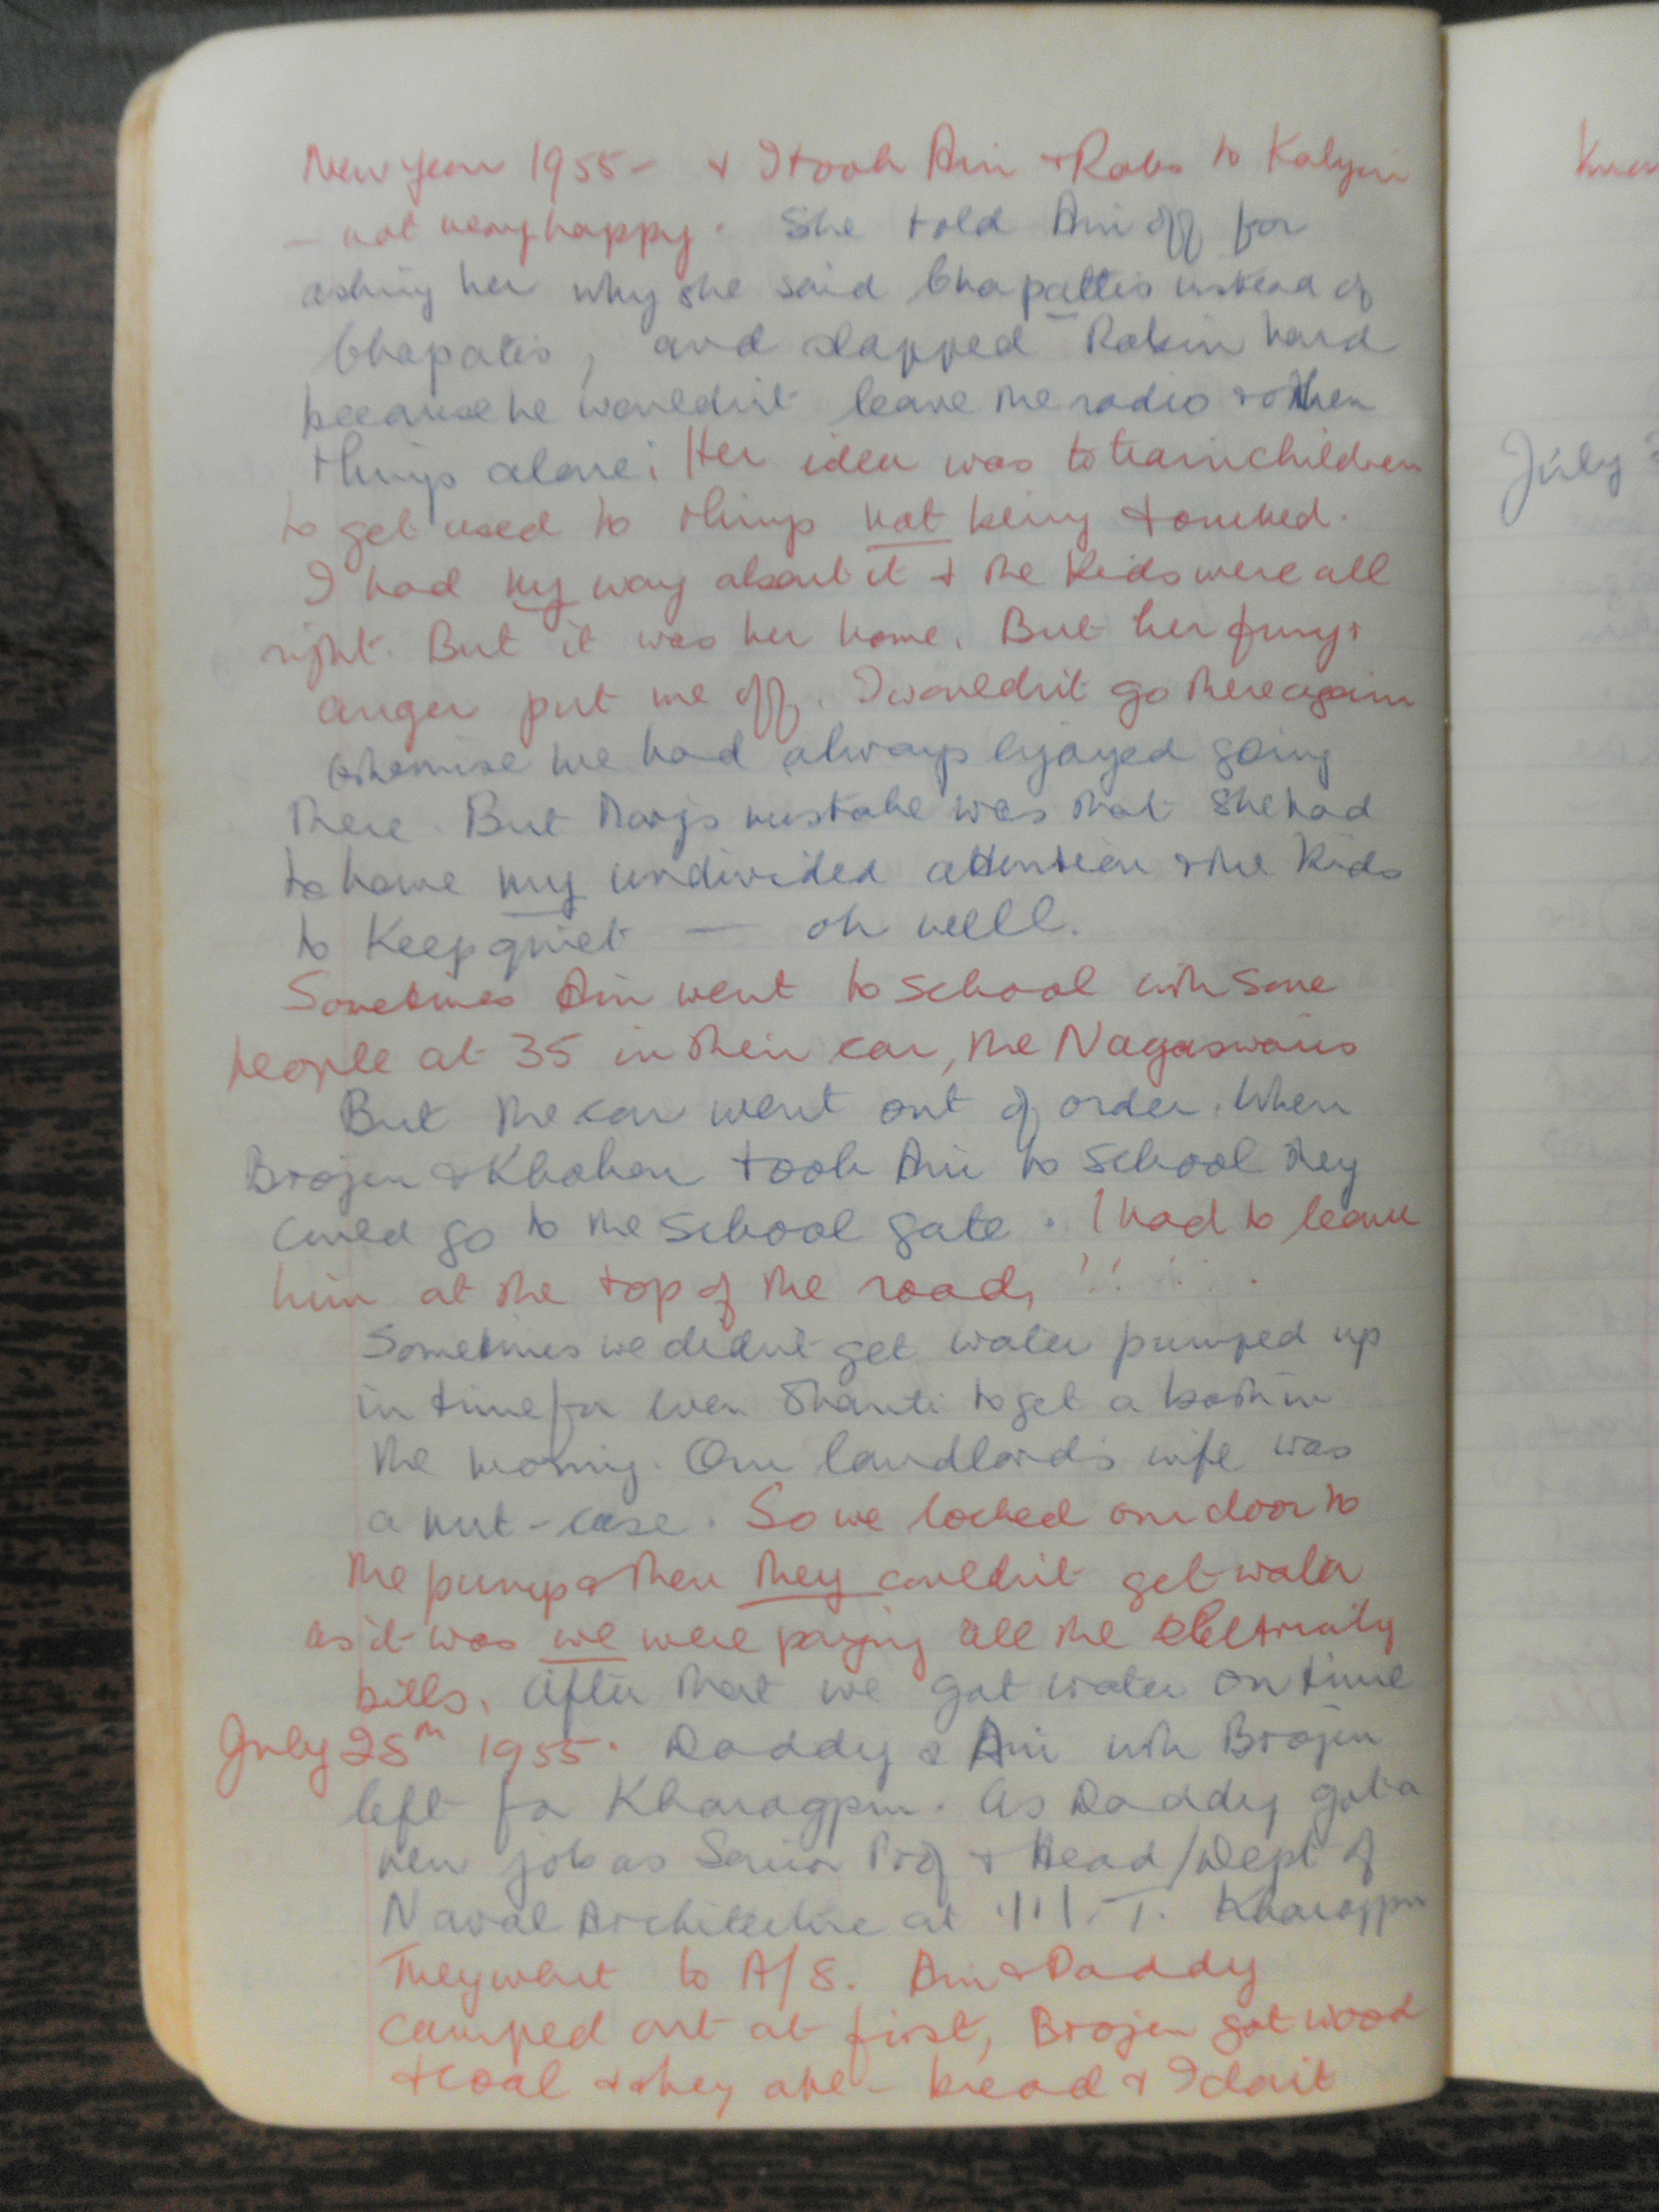 New year 1955 - & I took Ani & Robs to Kalyan
- not very happy. She told Ani off for
asking her why she said Chapattis instead of
Chapatis, and slapped Robin hard
because he wouldn't leave the radio & other
things alone; Her idea was to train children
to get used to things not being touched.
I had my way about it & the kids were all
right. But it was her home. But her fury &
anger put me off. I wouldn't go there again
otherwise we had always enjoyed going
there. But Marj's mistake was that she had
to have my undivided attention & the kids
to keep quiet — oh well.
Sometimes Ani went to school with some
people at 35 in their car, the Nagaswamis
But the car went out of order. When
Brojen & Khokon took Ani to school they
could go to the school gate. I had to leave
him at the top of the road, !!
Sometimes we didn't get water pumped up
in time for even Shanti to get a bath in
the morning. Our landlord's wife was
a nut-case. So we locked our door to
the pump & then they couldn't get water
as it was we were paying all the electricity
bills. After that we got water on time
July 25th 1955. Daddy & Ani with Brojen
left for Kharagpur. As Daddy got a
new job as Senior Prof & Head/Dept of
Naval Architecture at I.I.T. Kharagpur
They went to A/8. Ani & Daddy
camped out at first, Brojen got wood
& coal & they ate - bread & I don't
July